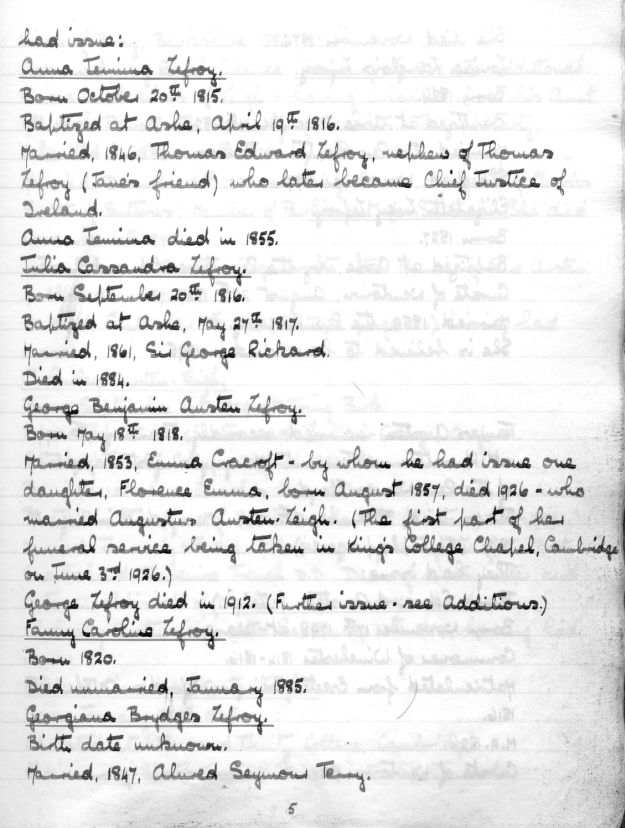 had issue:
Anna Jemima Lefroy.
Born October 20th 1815.
Baptized at Ashe, April 19th 1816.
Married, 1846, Thomas Edward Lefroy, nephew of Thomas
Lefroy (Jane's friend) who later became Chief Justice of
Ireland.
Anna Jemima died in 1855.
Julia Cassandra Lefroy.
Born September 20th 1816.
Baptized at Ashe, May 27th 1817.
Married, 1861, Sir George Rickard.
Died in 1884.
George Benjamin Austen Lefroy.
Born May 18th 1818.
Married, 1853, Emma Cracroft - by whom he had issue one
daughter, Florence Emma, born August 1857, died 1926 - who
married Augustus Austen-Leigh. (The first part of her
funeral service being taken in King's College Chapel, Cambridge
on June 3rd 1926.)
George Lefroy died in 1912. (Further issue - see Additions.)
Fanny Caroline Lefroy.
Born 1820.
Died unmarried, January 1885.
Georgiana Brydges Lefroy.
Birth date unknown.
Married, 1847, Alured Seymour Terry.
5